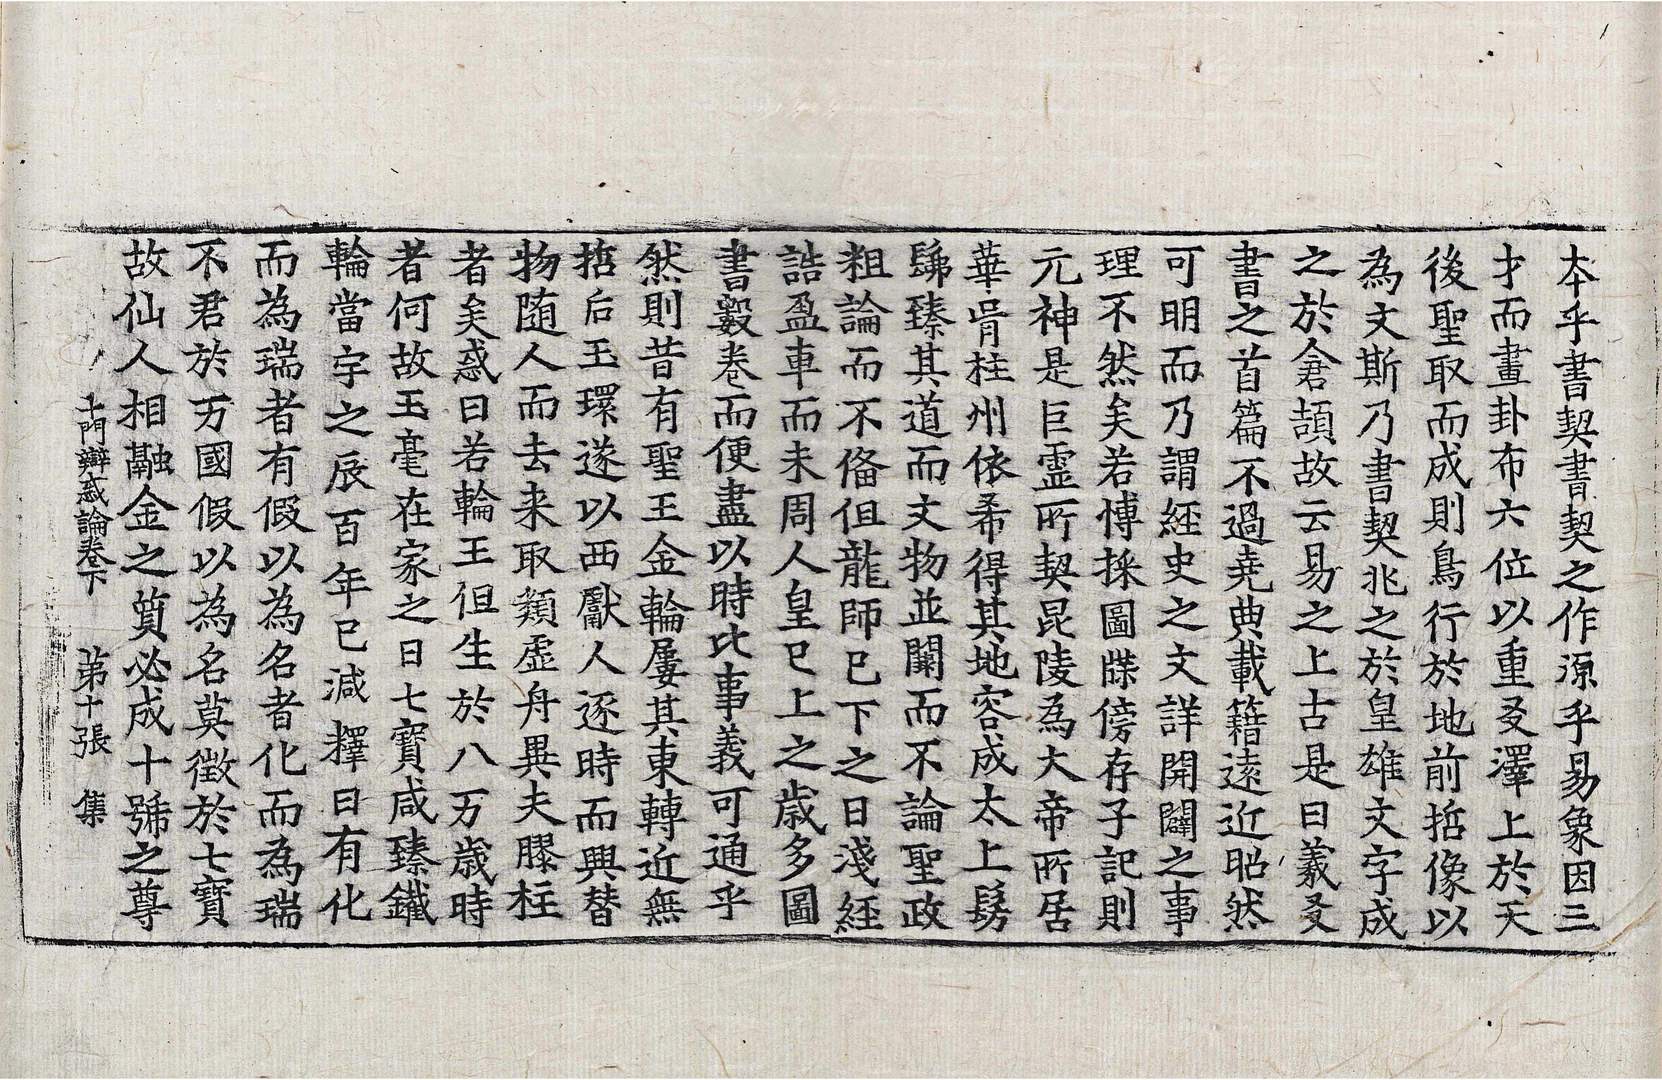 本乎書契書契之作源乎易象因三
才而畫卦布六位以重爻澤上於天
後聖取而成則鳥行於地前哲像以
為文斯乃書契兆之於皇雄文字成
之於倉頡故云易之上古是曰羲爻
書之首篇不過堯典載籍遠近昭然
可明而乃謂經史之文詳開闢之事
理不然矣若博採圖牒傍存子記則
元神是巨靈所契昆陵為大帝所居
華胥柱州依希得其地容成太上髣
髴臻其道而文物並闕而不論聖政
粗論而不俻但龍師已下之日淺經
誥盈車而未周人皇已上之歲多圖
書數卷而便盡以時比事義可通乎
然則昔有聖王金輪屢其東轉近無
哲后玉環遂以西獻人逐時而興替
物随人而去来取類虛舟異夫膠柱
者矣惑曰若輪王但生於八万歲時
者何故玉毫在家之日七寶咸臻鐵
輪當宇之辰百年已減釋曰有化
而為瑞者有假以為名者化而為瑞
不君於万國假以為名莫徵於七寶
故仙人相融金之質必成十號之尊
十門辯惑論卷下 第十張 集